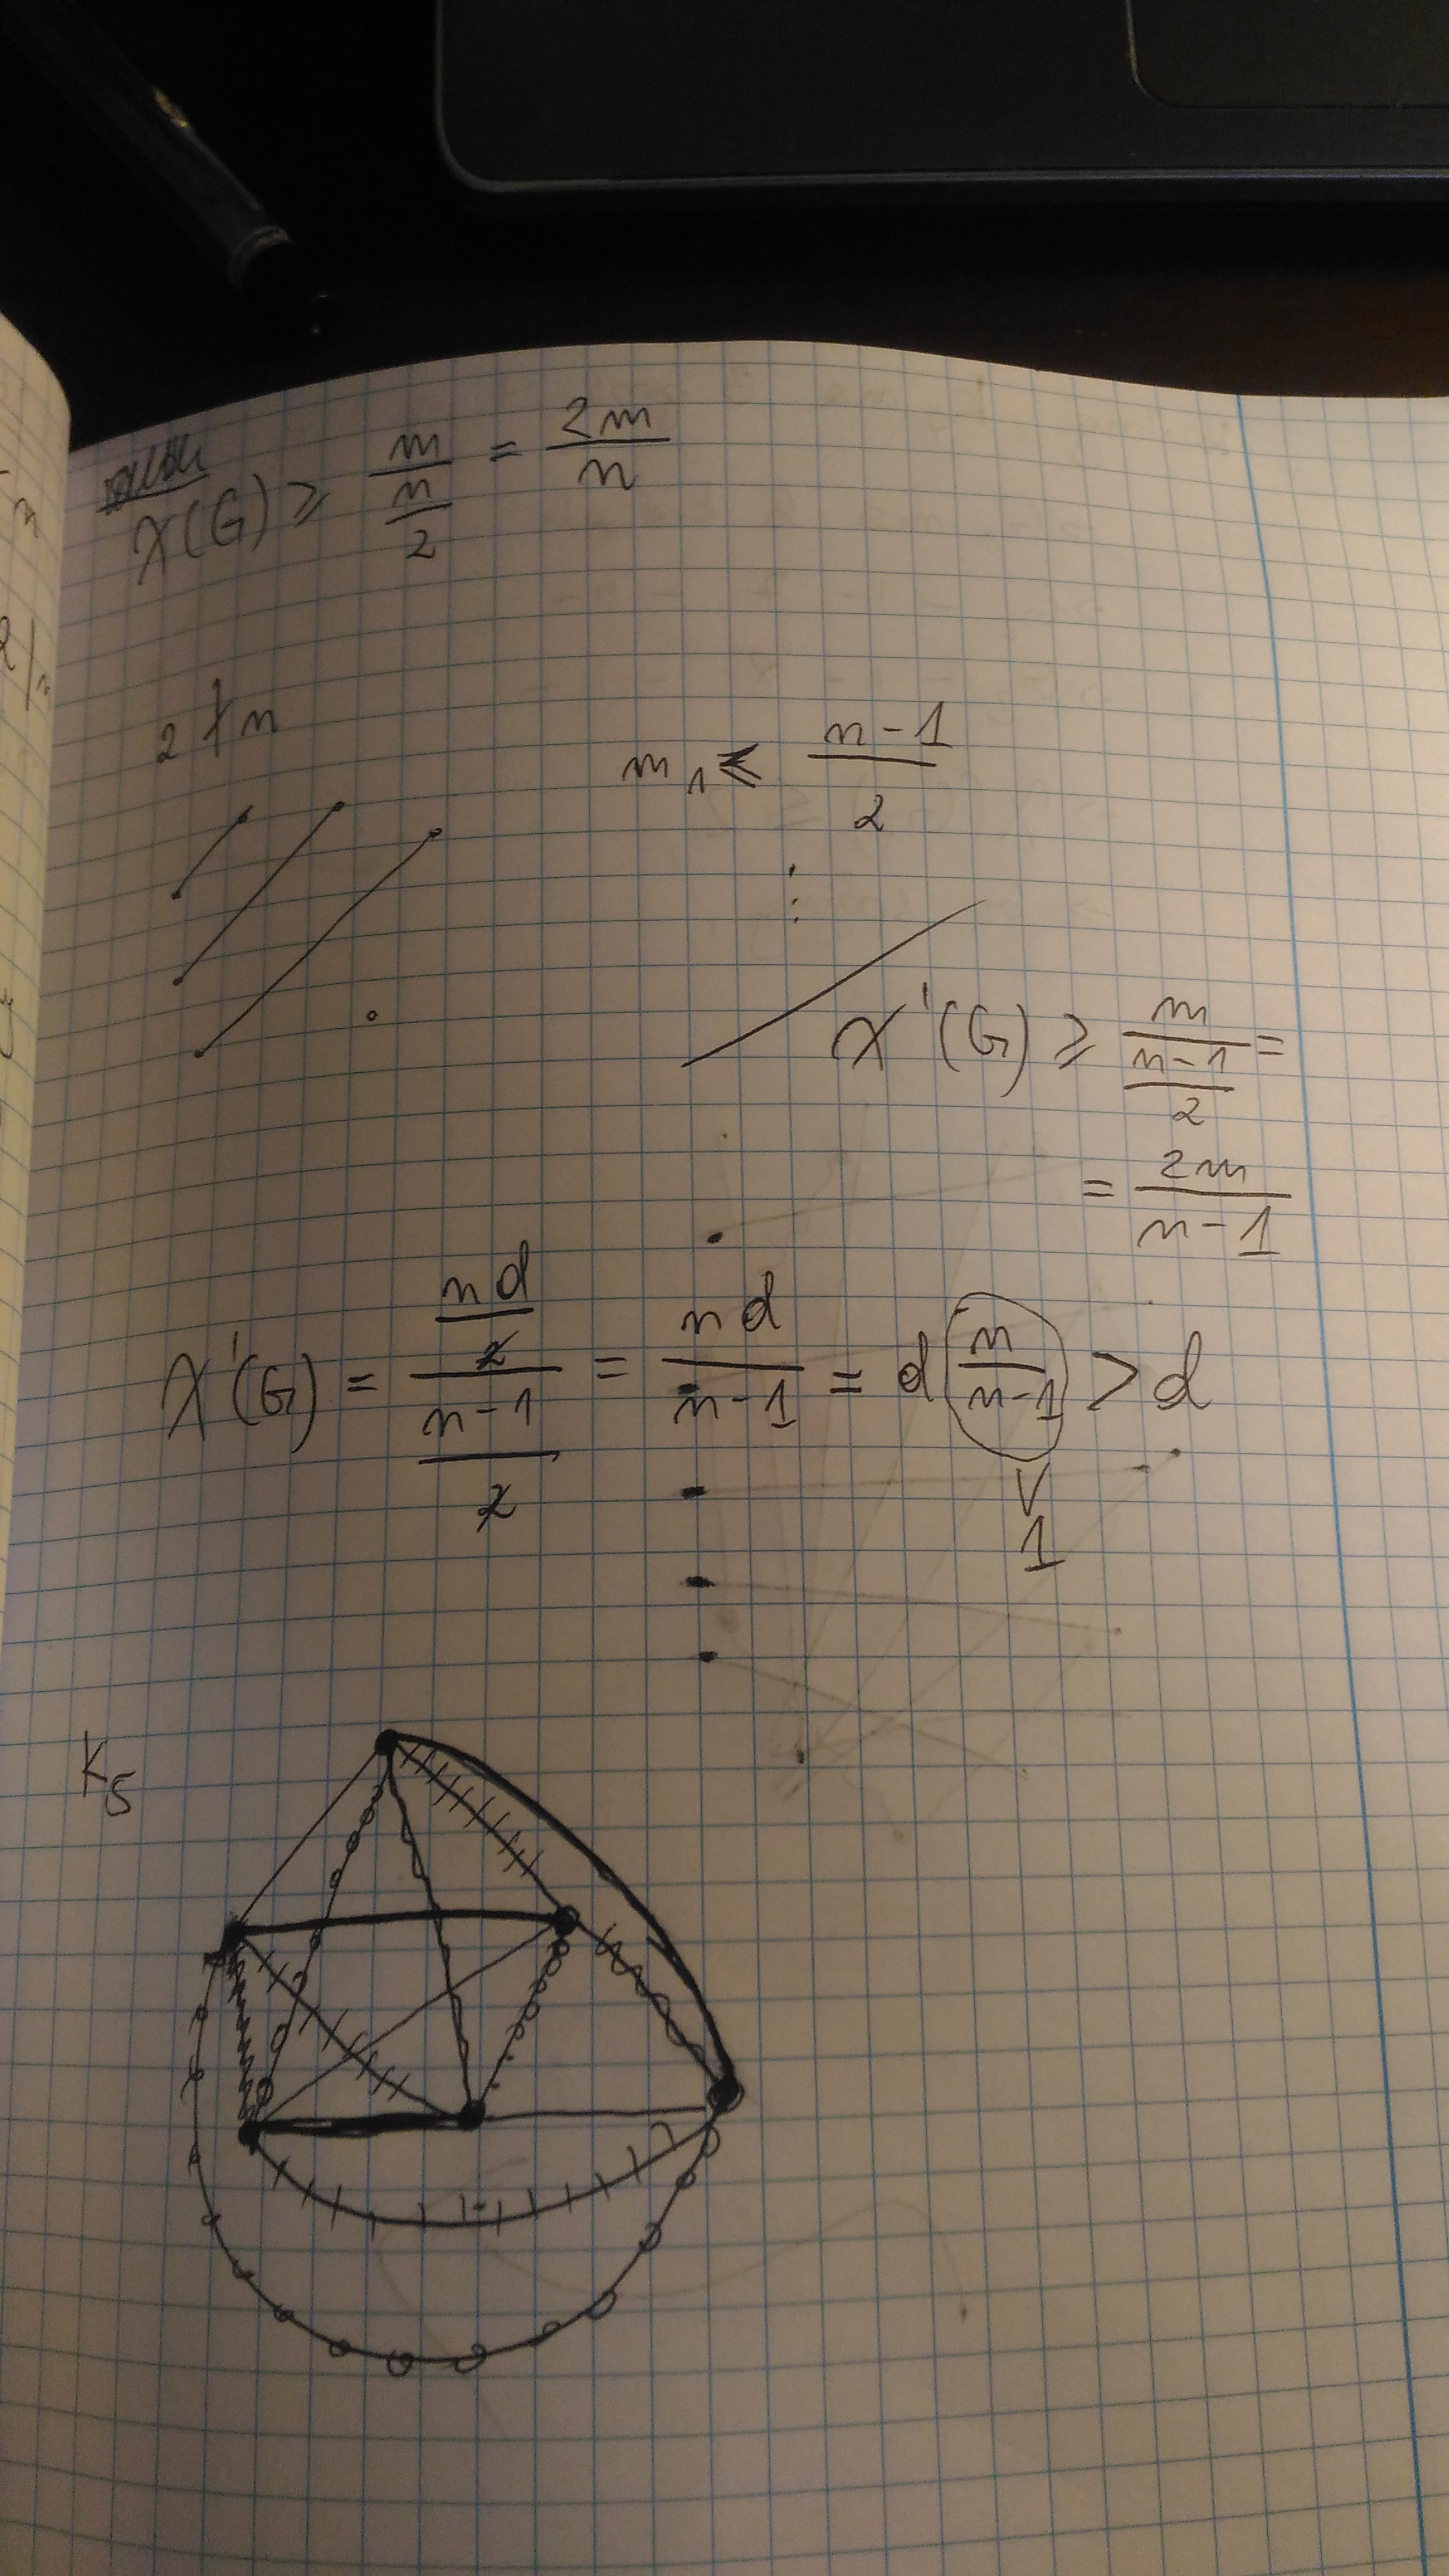 χ(G) ≥ m / (n/2) = 2m/n
2 ∤ n
m₁ ≤ (n-1)/2
⋮
χ'(G) ≥ m / ((n-1)/2) =
= 2m/(n-1)
χ'(G) = (nd/2) / ((n-1)/2) = nd/(n-1) = d (n/(n-1)) > d
∨
1
K₅